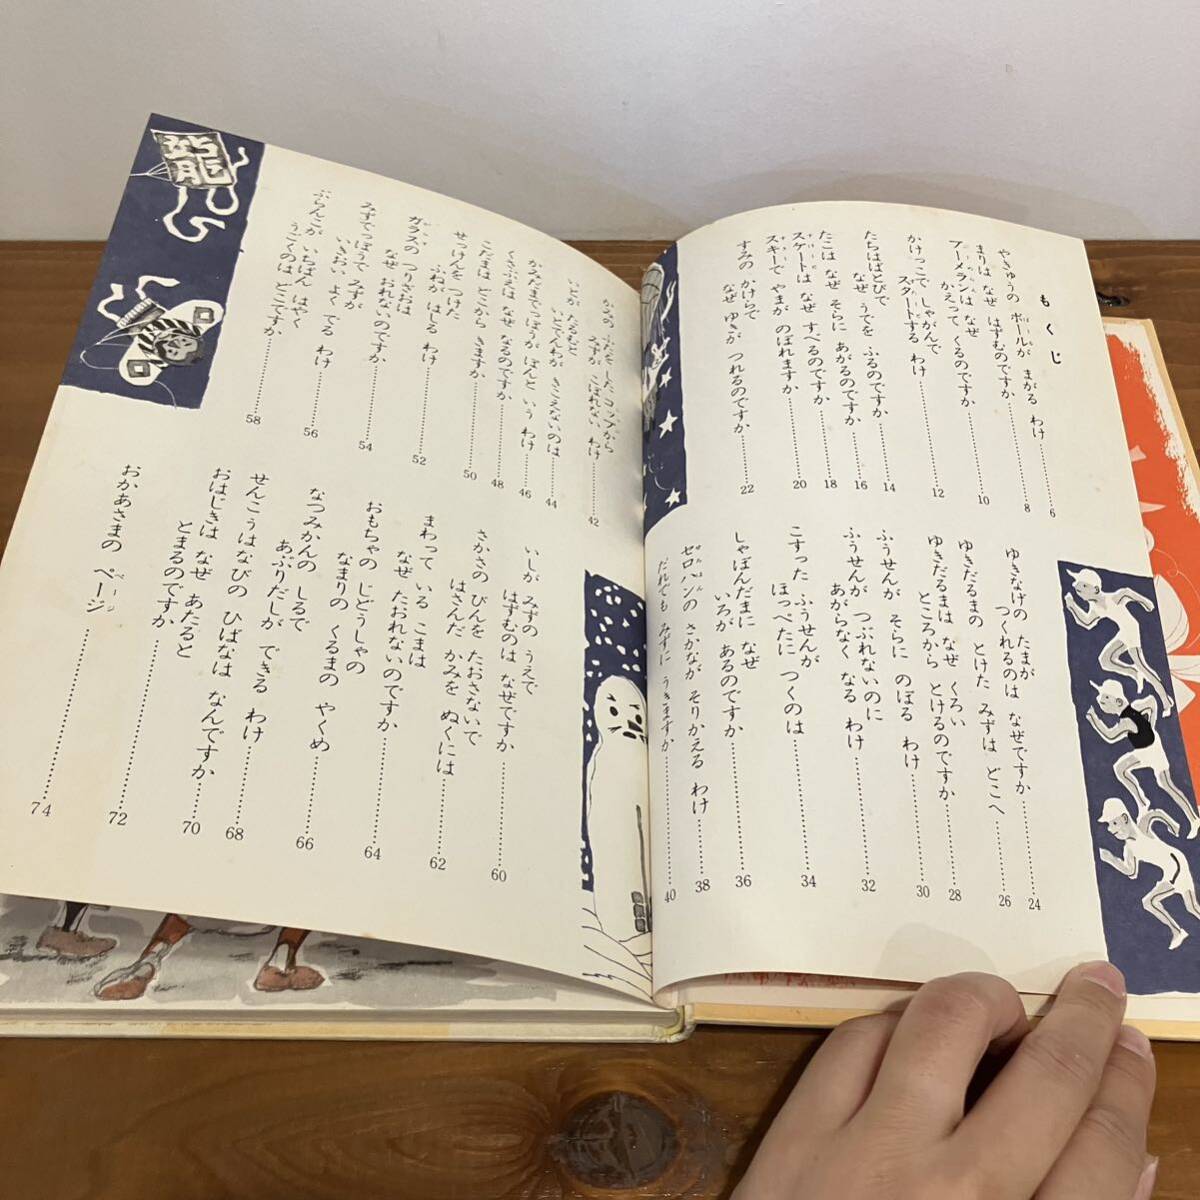 もくじ
やきゅうの ボールが まがる わけ………6
まりは なぜ はずむのですか………8
ブーメランは なぜ
かえって くるのですか………10
かけっこで しゃがんで
スタートする わけ………12
たちはばとびで
なぜ うでを ふるのですか………14
たこは なぜ そらに あがるのですか………16
スケートは なぜ すべるのですか………18
スキーで やまが のぼれますか………20
すみの かけらで
なぜ ゆきが つれるのですか………22
ゆきなげの たまが
つくれるのは なぜですか………24
ゆきだるまの とけた みずは どこへ………26
ゆきだるまは なぜ くろい
ところから とけるのですか………28
ふうせんが そらに のぼる わけ………30
ふうせんが つぶれないのに
あがらなく なる わけ………32
こすった ふうせんが
ほっぺたに つくのは………34
しゃぼんだまに なぜ
いろが あるのですか………36
セロハンの さかなが そりかえる わけ………38
だれでも みずに うきますか………40
ふたを した コップから
みずが こぼれない わけ………42
いとが たるむと
いとでんわが きこえないのは………44
かみだまでっぽうが ぽんと いう わけ………46
くちぶえは なぜ なるのですか………48
こだまは どこから きますか………50
せっけんを つけた
ふねが はしる わけ………52
ガラスの つりざおは
なぜ おれないのですか………54
みずでっぽうで みずが
いきおい よく でる わけ………56
ぶらんこが いちばん はやく
うごくのは どこですか………58
いしが みずの うえで
はずむのは なぜですか………60
さかさの びんを たおさないで
はさんだ かみを ぬくには………62
まわって いる こまは
なぜ たおれないのですか………64
おもちゃの じどうしゃの
なまりの くるまの やくめ………66
なつみかんの しるで
あぶりだしが できる わけ………68
せんこうはなびの ひばなは なんですか………70
おはじきは なぜ あたると
とまるのですか………72
おかあさまの ページ………74
龍